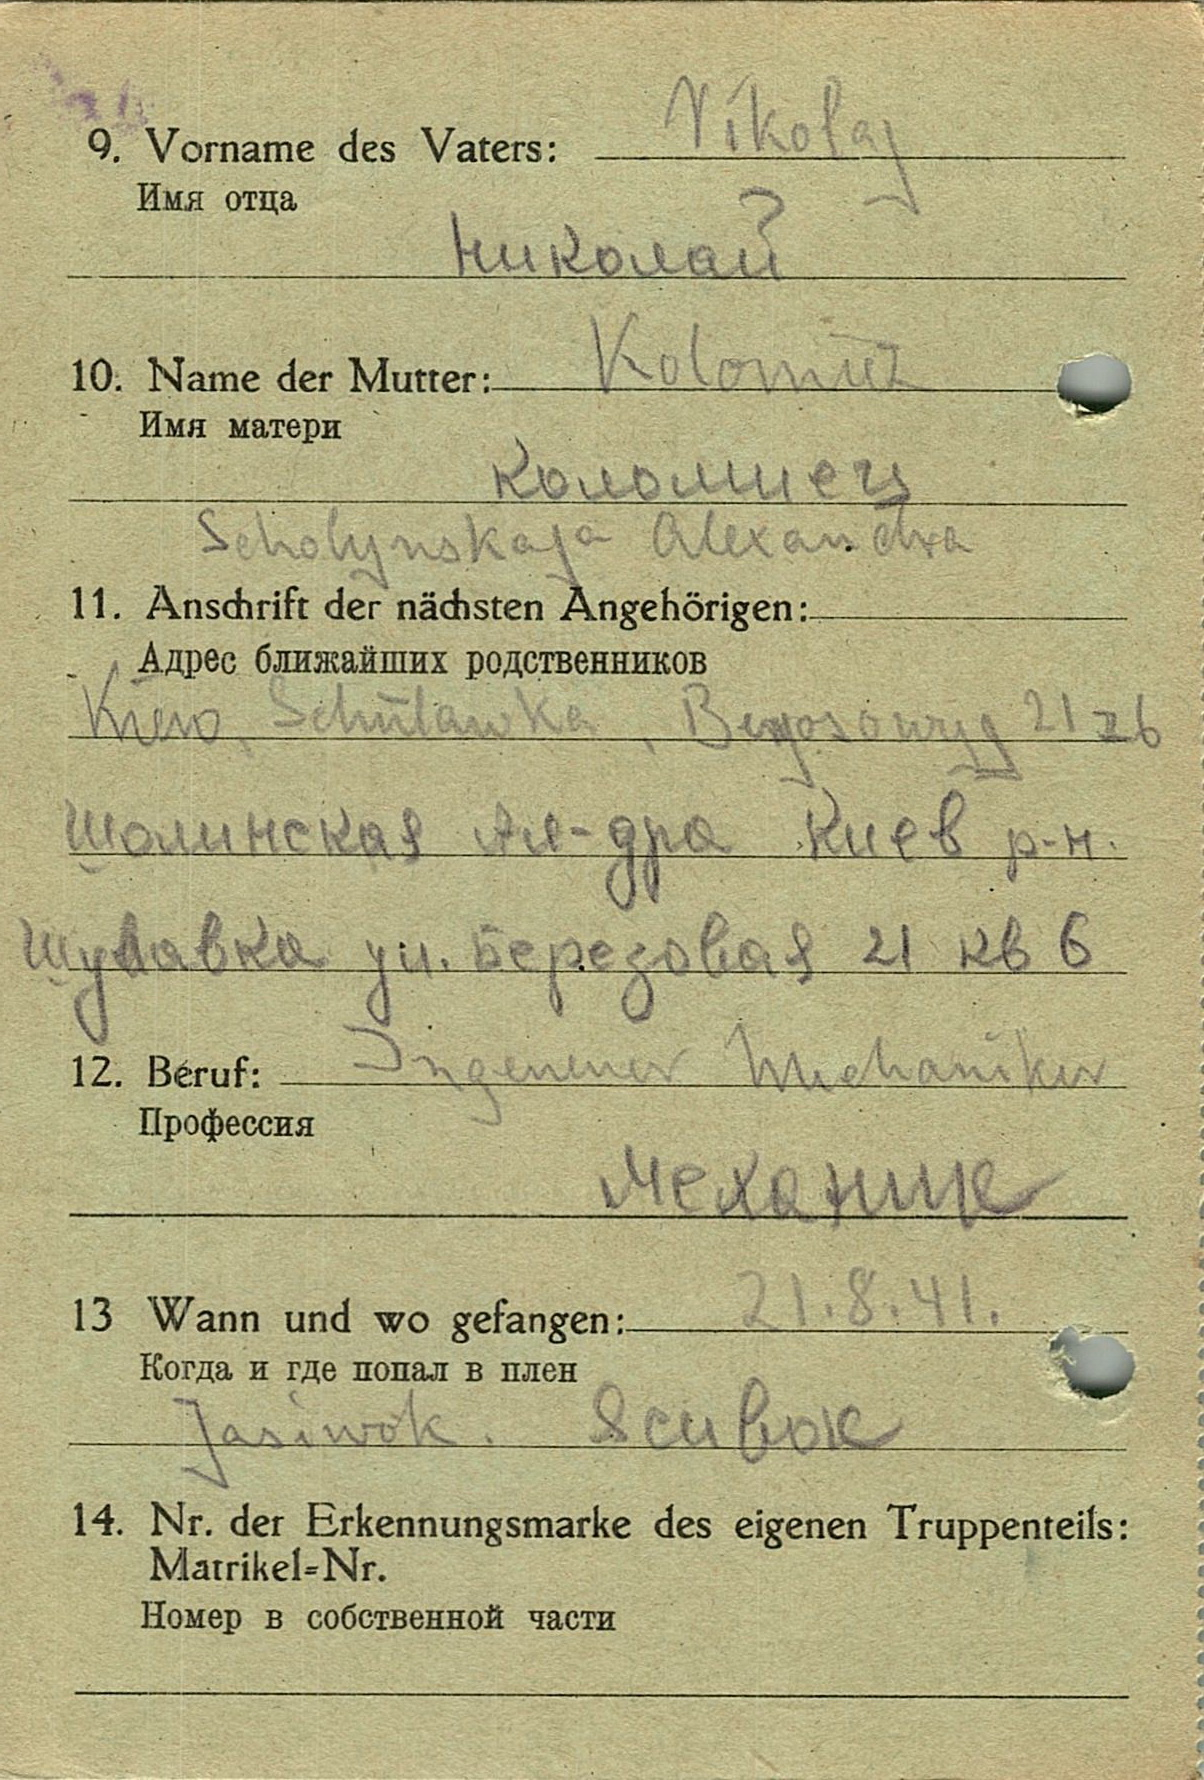 9. Vorname des Vaters: Nikolaj
Имя отца
Николай
10. Name der Mutter: Kolomiez
Имя матери
Коломиец
Scholynskaja Alexandra
11. Anschrift der nächsten Angehörigen:
Адрес ближайших родственников
Kiew, Schulawka, 21 z 6
Шолинская Ал-дра Киев р-н.
Шулавка ул. Березовая 21 кв 6
12. Beruf: Ingeneuer Mechaniker
Профессия
Механик
13 Wann und wo gefangen: 21.8.41.
Когда и где попал в плен
Jasiwok.
14. Nr. der Erkennungsmarke des eigenen Truppenteils:
Matrikel=Nr.
Номер в собственной части